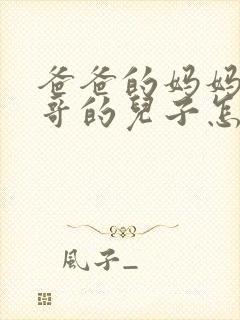 爸爸的妈妈
哥的兒子怎
風子_